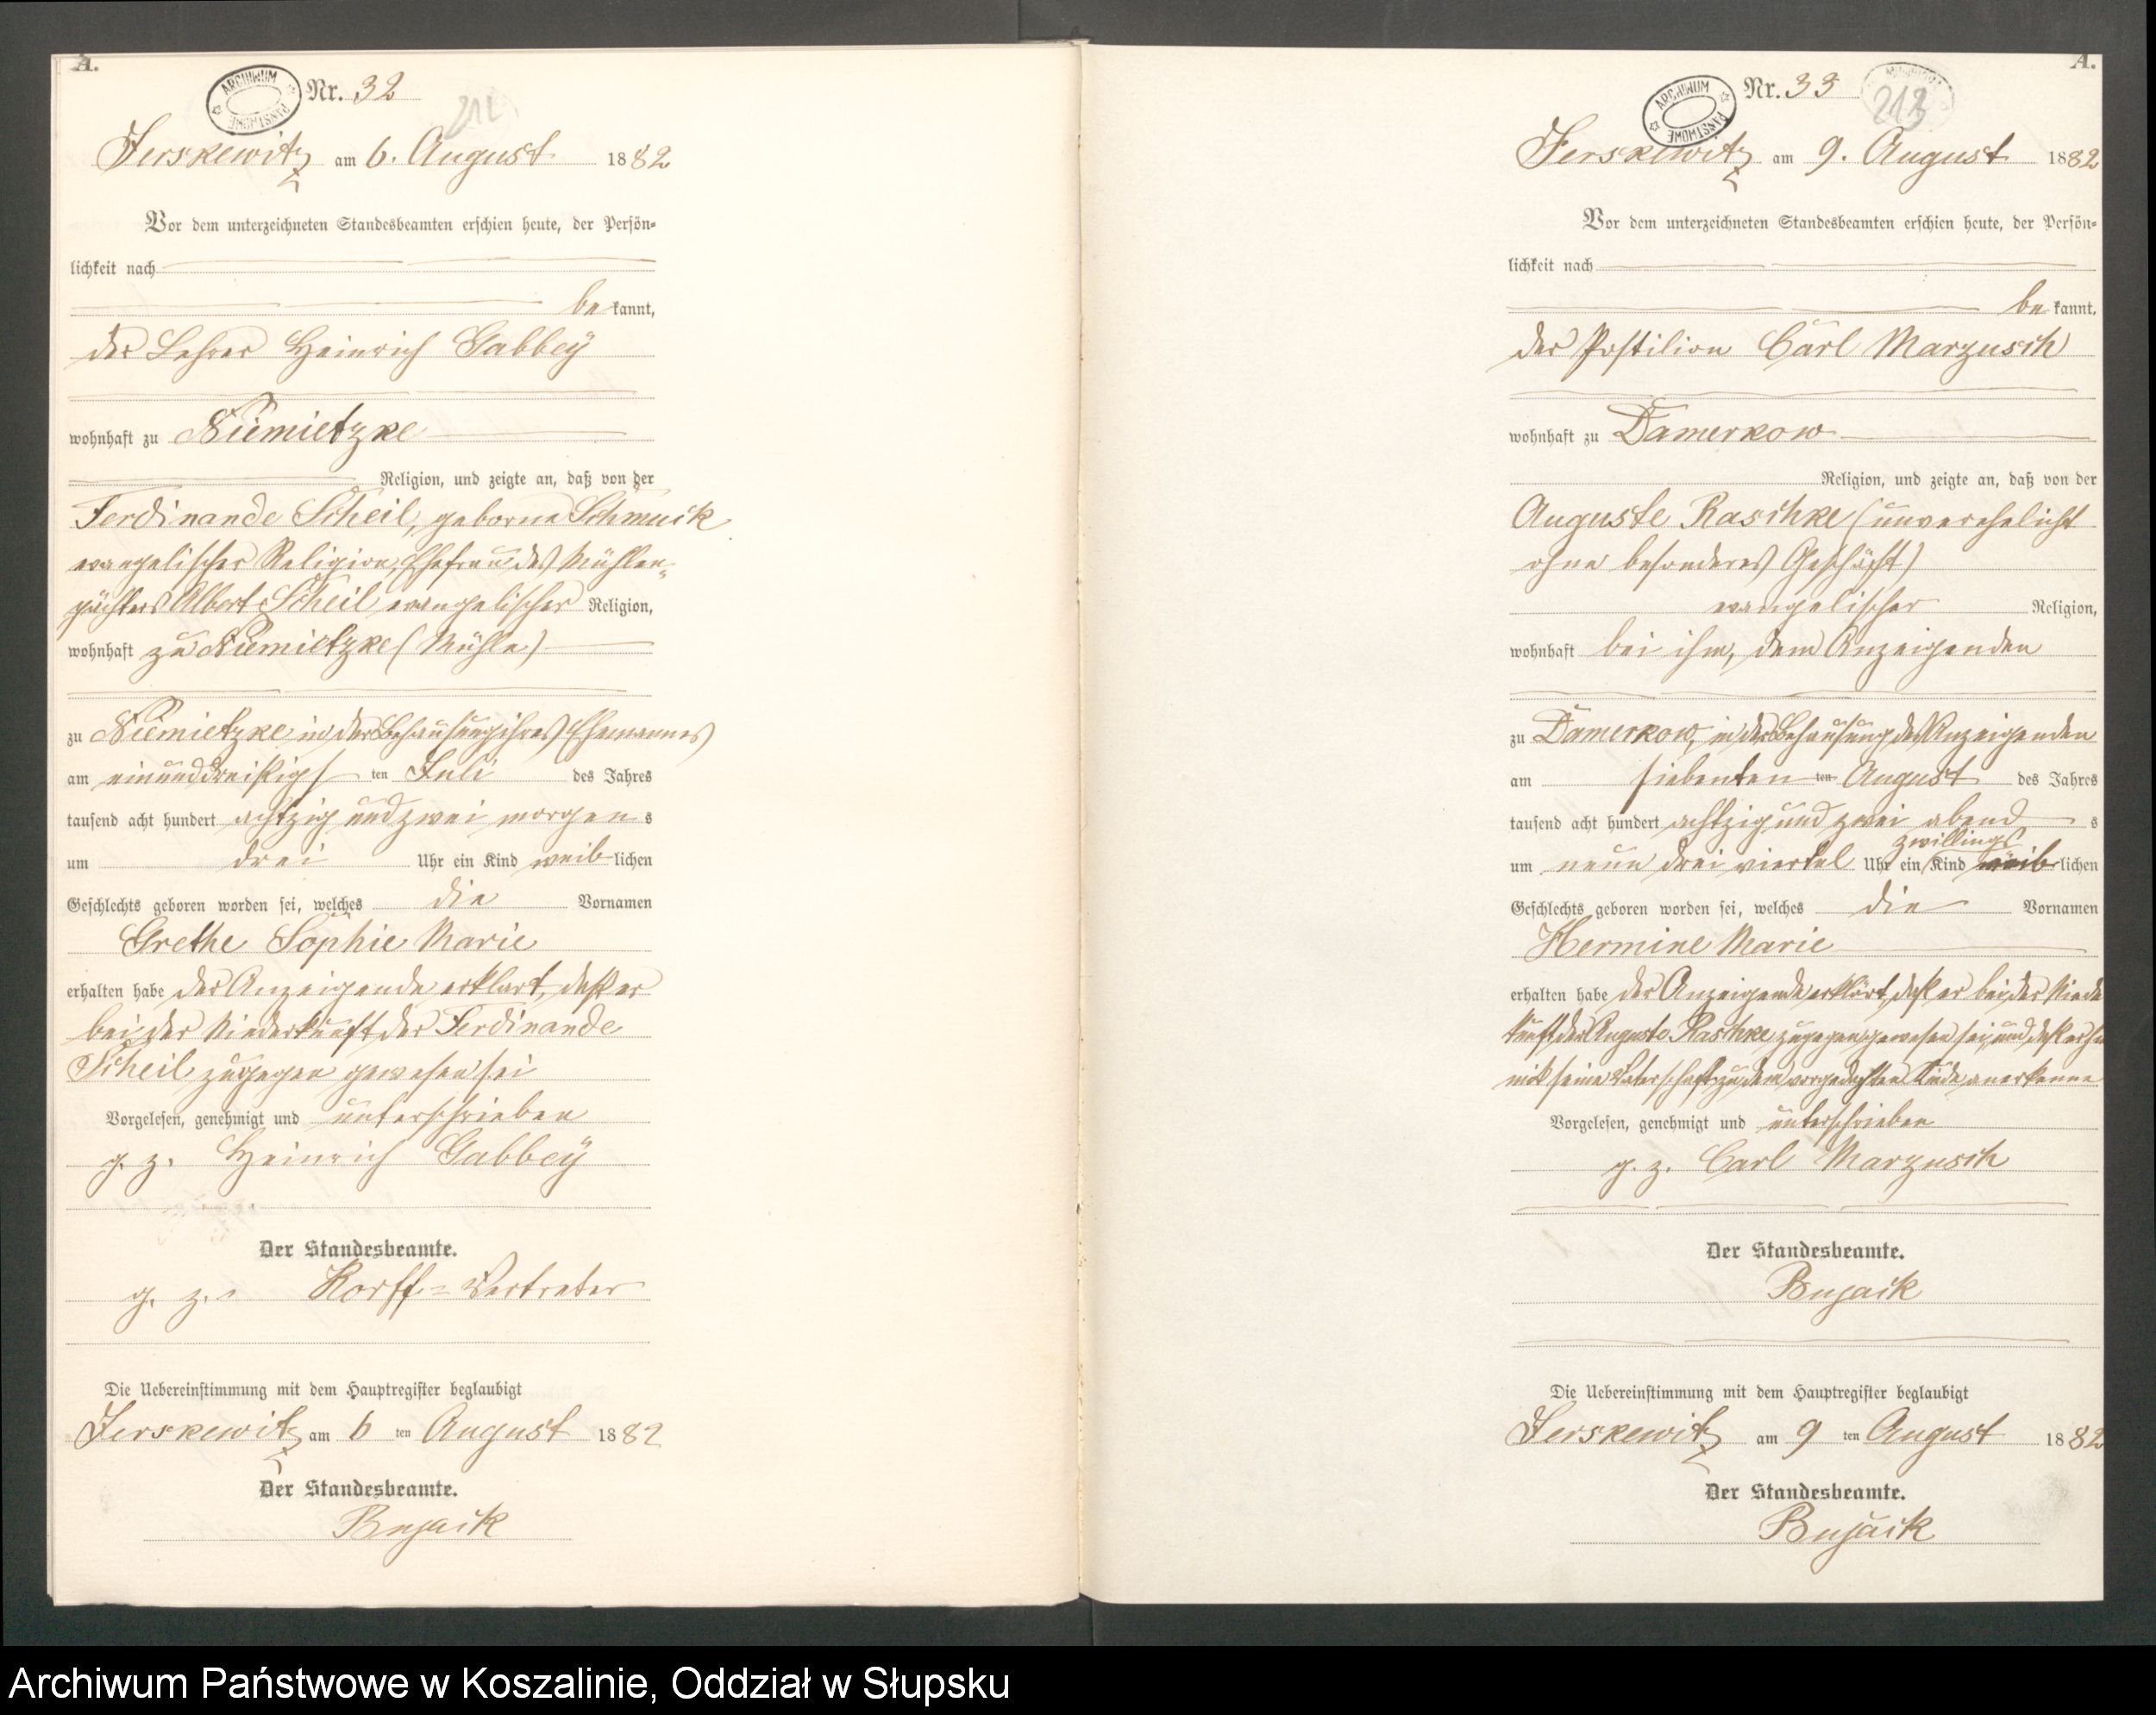 A.
ARCHIWUM PAŃSTWOWE
Nr. 32
212
Jerskewitz am 6. August 1882
Vor dem unterzeichneten Standesbeamten erschien heute, der Persön-
lichkeit nach
bekannt,
der Lehrer Heinrich Gabbey
wohnhaft zu Niemietzke
Religion, und zeigte an, daß von der
Ferdinande Scheil, geborne Schmuck
evangelischer Religion, Ehefrau des Mühlen-
pächters Albert Scheil evangelischer Religion,
wohnhaft zu Niemietzke (Mühle)
zu Niemietzke in der Behausung ihres Ehemannes
am einunddreißigsten Juli des Jahres
tausend acht hundert achtzig und zwei morgens
um drei Uhr ein Kind weiblichen
Geschlechts geboren worden sei, welches die Vornamen
Grethe Sophie Marie
erhalten habe der Anzeigende erklart, daß er
bei der Niederkunft der Ferdinande
Scheil zugegen gewesen sei
Vorgelesen, genehmigt und unterschrieben
g. z. Heinrich Gabbey
Der Standesbeamte.
g. z. Korff = Vertreter
Die Uebereinstimmung mit dem Hauptregister beglaubigt
Jerskewitz am 6 ten August 1882
Der Standesbeamte.
Bujack
A.
ARCHIWUM PAŃSTWOWE
Nr. 33
213
Jerskewitz am 9. August 1882
Vor dem unterzeichneten Standesbeamten erschien heute, der Persön-
lichkeit nach
bekannt,
der Postilion Carl Marzusch
wohnhaft zu Damerkow
Religion, und zeigte an, daß von der
Auguste Raschke (unverehelicht
ohne besonderes Geschäft)
evangelischer Religion,
wohnhaft bei ihm, dem Anzeigenden
zu Damerkow, in der Behausung des Anzeigenden
am siebenten ten August des Jahres
tausend acht hundert achtzig und zwei abends
zwillings
um neun drei viertel Uhr ein Kind weiblichen
Geschlechts geboren worden sei, welches die Vornamen
Hermine Marie
erhalten habe der Anzeigende erklärt, daß er bei der Niede
kunft der Auguste Raschke zugegen gewesen sei, und daß er hie
mit seine Vaterschaft zu dem vorgedachten Kinde anerkenne
Vorgelesen, genehmigt und unterschrieben
g. z. Carl Marzusch
Der Standesbeamte.
Bujack
Die Uebereinstimmung mit dem Hauptregister beglaubigt
Jerskewitz am 9 ten August 1882
Der Standesbeamte.
Bujack
Archiwum Państwowe w Koszalinie, Oddział w Słupsku